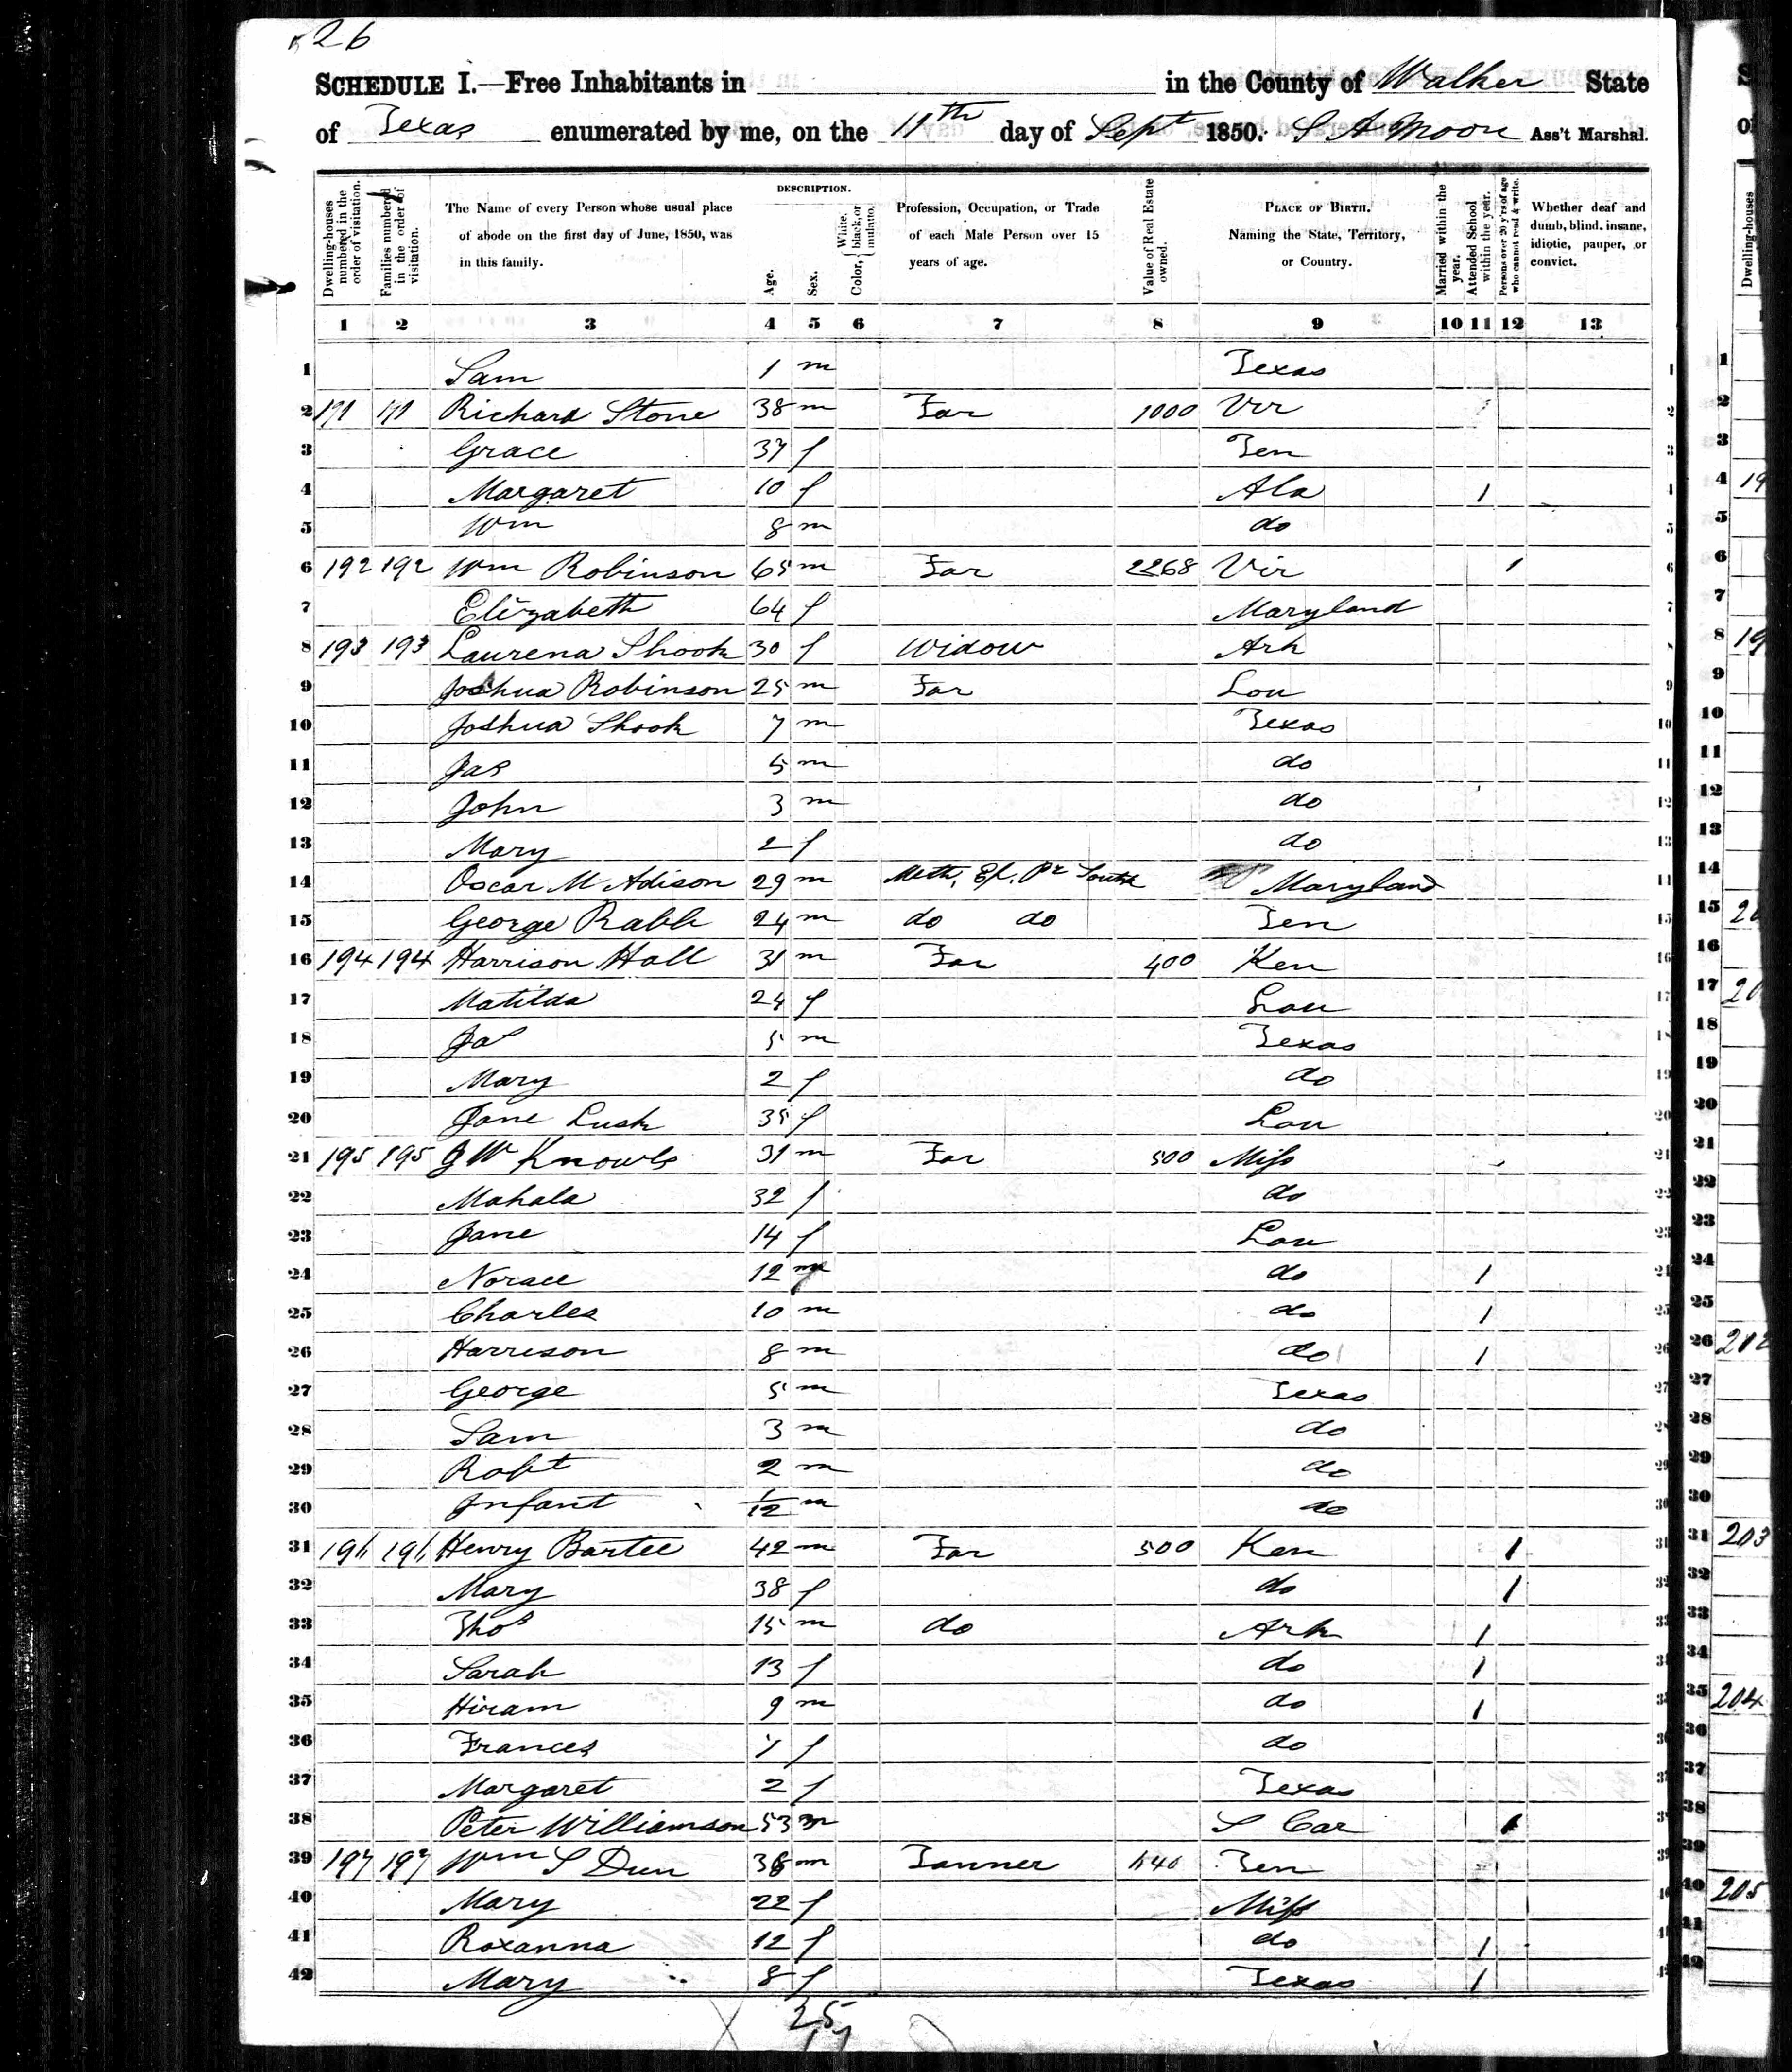 26
SCHEDULE I.—Free Inhabitants in in the County of Walker State
of Texas enumerated by me, on the 11th day of Sept 1850. S A Moon Ass't Marshal.
Dwelling-houses numbered in the order of visitation.
Families numbered in the order of visitation.
The Name of every Person whose usual place of abode on the first day of June, 1850, was in this family.
DESCRIPTION.
Age.
Sex.
Color, { White, black, or mulatto.
Profession, Occupation, or Trade of each Male Person over 15 years of age.
Value of Real Estate owned.
PLACE OF BIRTH. Naming the State, Territory, or Country.
Married within the year.
Attended School within the year.
Persons over 20 y'rs of age who cannot read & write.
Whether deaf and dumb, blind, insane, idiotic, pauper, or convict.
1 2 3 4 5 6 7 8 9 10 11 12 13
1 Sam 1 m Texas 1
2 191 191 Richard Stone 38 m Far 1000 Vir 2
3 Grace 37 f Ten 3
4 Margaret 10 f Ala 1 4
5 Wm 8 m do 5
6 192 192 Wm Robinson 65 m Far 2268 Vir 1 6
7 Elizabeth 64 f Maryland 7
8 193 193 Laurena Shook 30 f Widow Ark 8
9 Joshua Robinson 25 m Far Lou 9
10 Joshua Shook 7 m Texas 10
11 Jas 5 m do 11
12 John 3 m do 12
13 Mary 2 f do 13
14 Oscar M Adison 29 m Meth. Ep. Pr South Maryland 14
15 George Rabb 24 m do do Ten 15
16 194 194 Harrison Hall 31 m Far 400 Ken 16
17 Matilda 24 f Lou 17
18 Jas 5 m Texas 18
19 Mary 2 f do 19
20 Jane Lusk 35 f Lou 20
21 195 195 J W Knowls 31 m Far 500 Miss 21
22 Mahala 32 f do 22
23 Jane 14 f Lou 23
24 Norace 12 m do 1 24
25 Charles 10 m do 1 25
26 Harrison 8 m do 1 26
27 George 5 m Texas 27
28 Sam 3 m do 28
29 Robt 2 m do 29
30 Infant 1/12 m do 30
31 196 196 Henry Bartee 42 m Far 500 Ken 1 31
32 Mary 38 f do 1 32
33 Thos 15 m do Ark 1 33
34 Sarah 13 f do 1 34
35 Hiram 9 m do 1 35
36 Frances 7 f do 36
37 Margaret 2 f Texas 37
38 Peter Williamson 53 m S Car 1 38
39 197 197 Wm S Dun 38 m Tanner Ten 39
40 Mary 22 f Miss 40
41 Roxanna 12 f do 1 41
42 Mary 8 f Texas 1 42
25
17